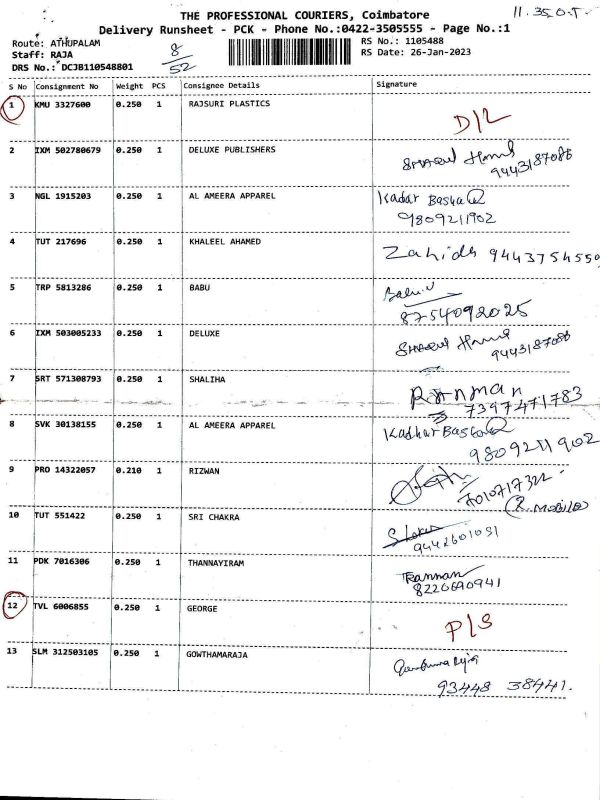 THE PROFESSIONAL COURIERS, Coimbatore
11.35 O.T.
Delivery Runsheet - PCK - Phone No.:0422-3505555 - Page No.:1
Route: ATHUPALAM
Staff: RAJA
DRS No.: DCJB110548801
8/52
RS No.: 1105488
RS Date: 26-Jan-2023
S No Consignment No Weight PCS Consignee Details Signature
1 KMU 3327600 0.250 1 RAJSURI PLASTICS D/L
2 IXM 502780679 0.250 1 DELUXE PUBLISHERS
9443187086
3 NGL 1915203 0.250 1 AL AMEERA APPAREL Kadar Basha
9809211902
4 TUT 217696 0.250 1 KHALEEL AHAMED Zahida 9443754550
5 TRP 5813286 0.250 1 BABU
8754092025
6 IXM 503005233 0.250 1 DELUXE
9443187086
7 SRT 571308793 0.250 1 SHALIHA
7397471783
8 SVK 30138155 0.250 1 AL AMEERA APPAREL Kadhar Basha
9809211902
9 PRO 14322057 0.210 1 RIZWAN 7010717322
(R. MOBILE)
10 TUT 551422 0.250 1 SRI CHAKRA
9442601031
11 PDK 7016306 0.250 1 THANNAYIRAM Kannan
8220690941
12 TVL 6006855 0.250 1 GEORGE P/S
13 SLM 312503105 0.250 1 GOWTHAMARAJA
93448 38441.